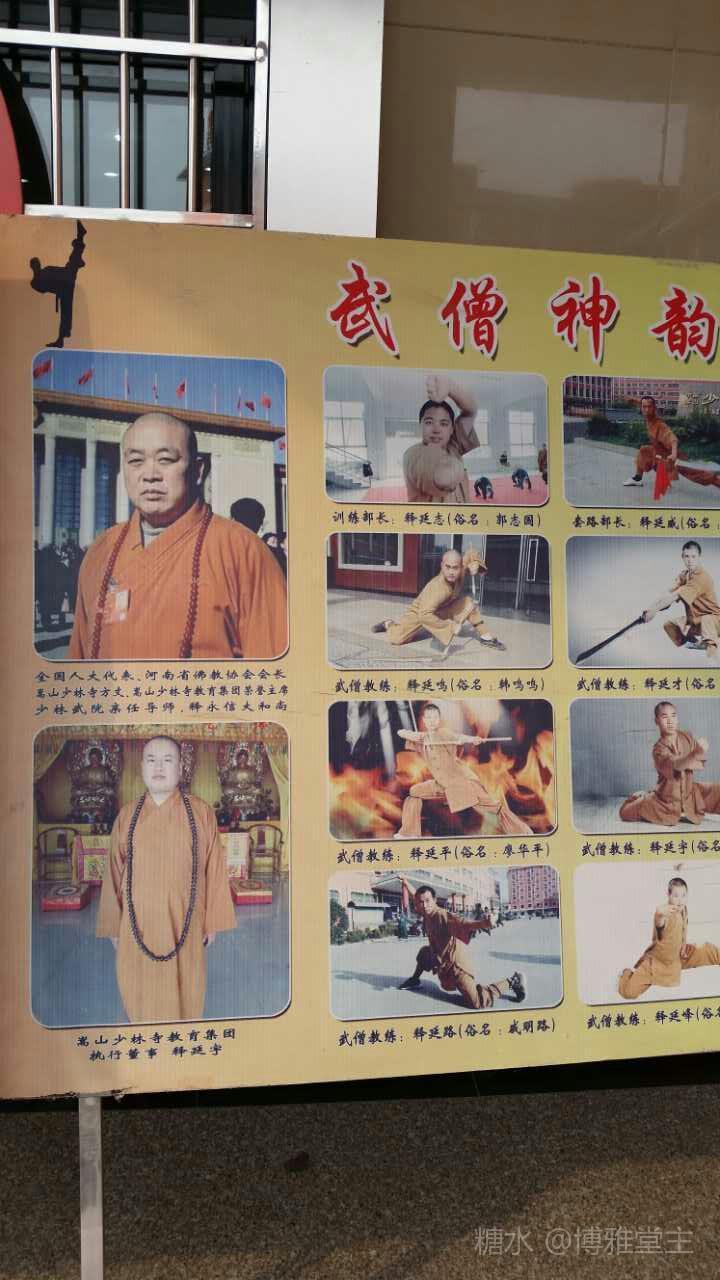 武僧神韵
全国人大代表、河南省佛教协会会长
嵩山少林寺方丈、嵩山少林寺教育集团荣誉主席
少林武院亲任导师，释永信大和尚
嵩山少林寺教育集团
执行董事 释延宇
训练部长：释延志(俗名：郭志国)
套路部长：释延威(俗名：
武僧教练：释延鸣(俗名：韩鸣鸣)
武僧教练：释延才(俗名
武僧教练：释延平(俗名：廖华平)
武僧教练：释延宇(俗名
武僧教练：释延路(俗名：戚明路)
武僧教练：释延峰(俗名
糖水 @博雅堂主